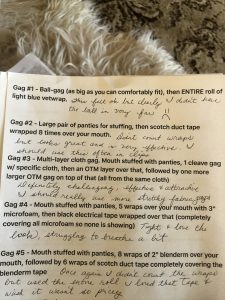 Gag #1 - Ball-gag (as big as you can comfortably fit), then ENTIRE roll of
light blue vetwrap.
This felt ok but clearly I didn't have
the ball in very far
Gag #2 - Large pair of panties for stuffing, then scotch duct tape
wrapped 8 times over your mouth.
Didn't count wraps
but looks great and is very effective. I
should use this often in clips
Gag #3 - Multi-layer cloth gag. Mouth stuffed with panties, 1 cleave gag
w/ specific cloth, then an OTM layer over that, followed by one more
larger OTM gag on top of that (all from the same cloth)
Definitely challenging, effective & attractive
I should really use more stretchy fabric
Gag #4 - Mouth stuffed with panties, 5 wraps over your mouth with 3"
microfoam, then black electrical tape wrapped over that (completely
covering all microfoam so none is showing)
Tight & love the
look, struggling to breathe a bit
Gag #5 - Mouth stuffed with panties, 6 wraps of 2" blenderm over your
mouth, followed by 6 wraps of scotch duct tape completely covering the
blenderm tape
Once again I didn't count the wraps
but used the entire roll. I love that tape &
wish it wasn't so pricey